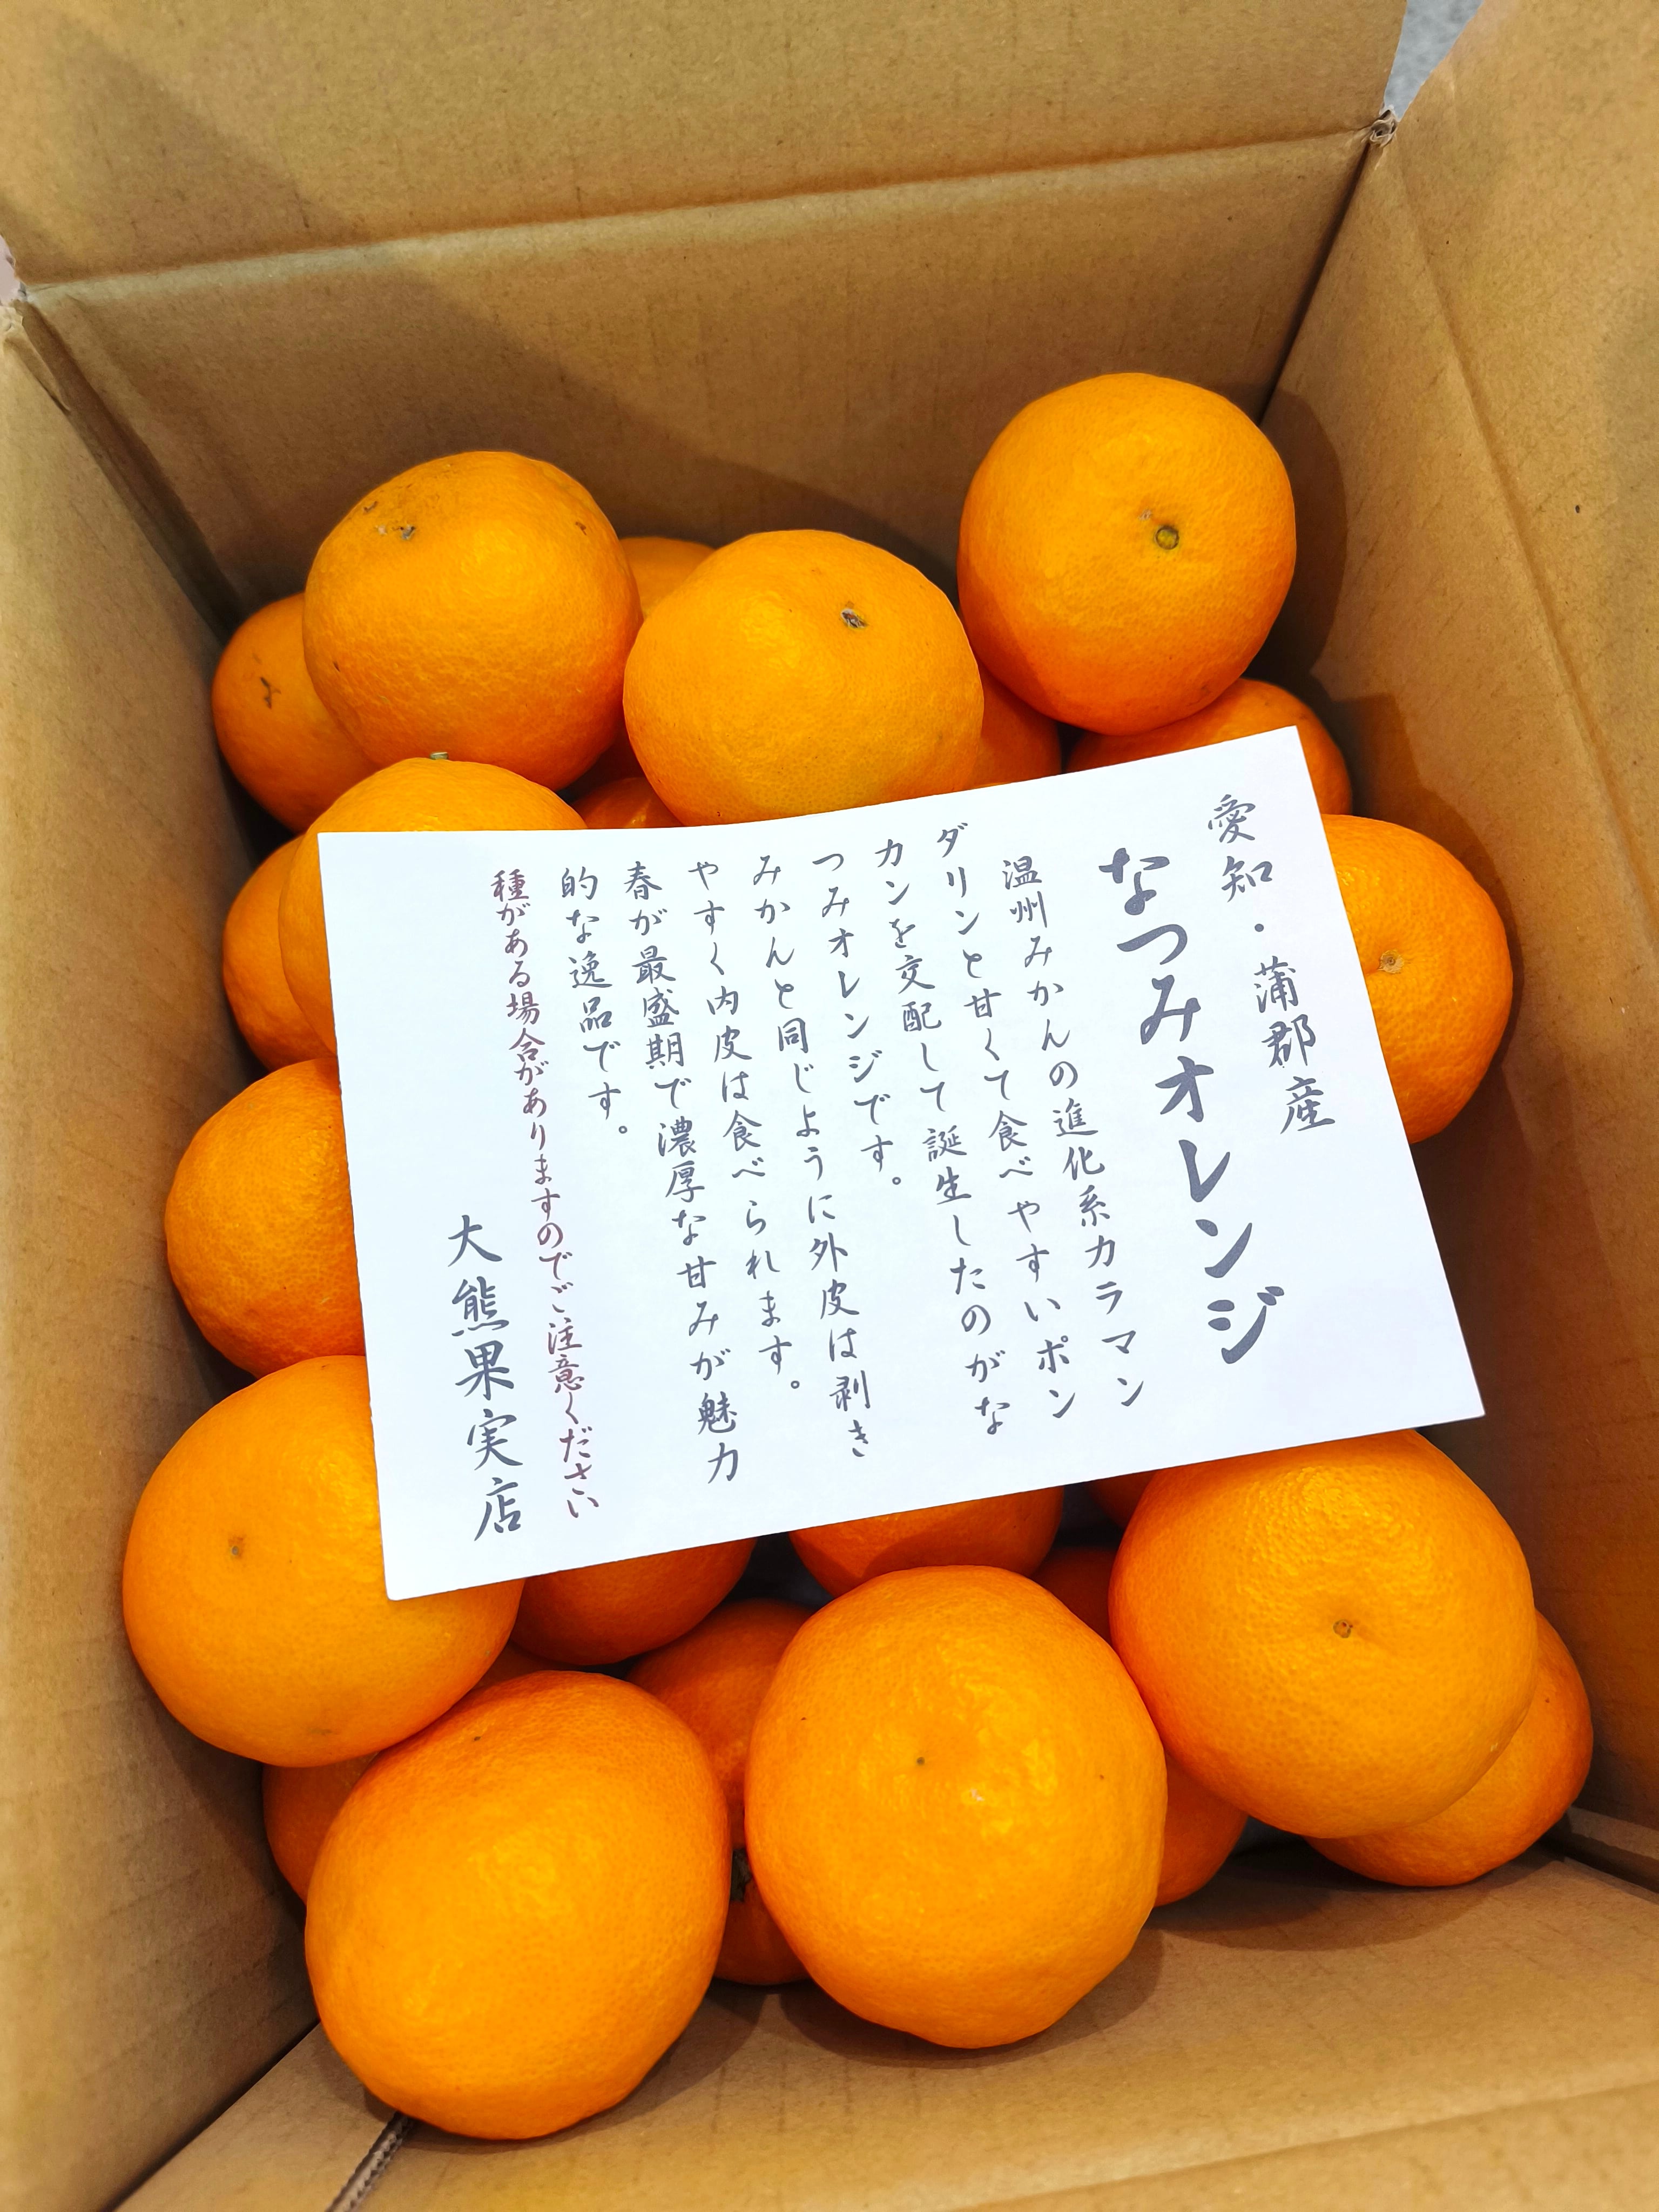 愛知・蒲郡産
なつみオレンジ
温州みかんの進化系カラマン
ダリンと甘くて食べやすいポン
カンを交配して誕生したのがな
つみオレンジです。
みかんと同じように外皮は剥き
やすく内皮は食べられます。
春が最盛期で濃厚な甘みが魅力
的な逸品です。
種がある場合がありますのでご注意ください
大熊果実店